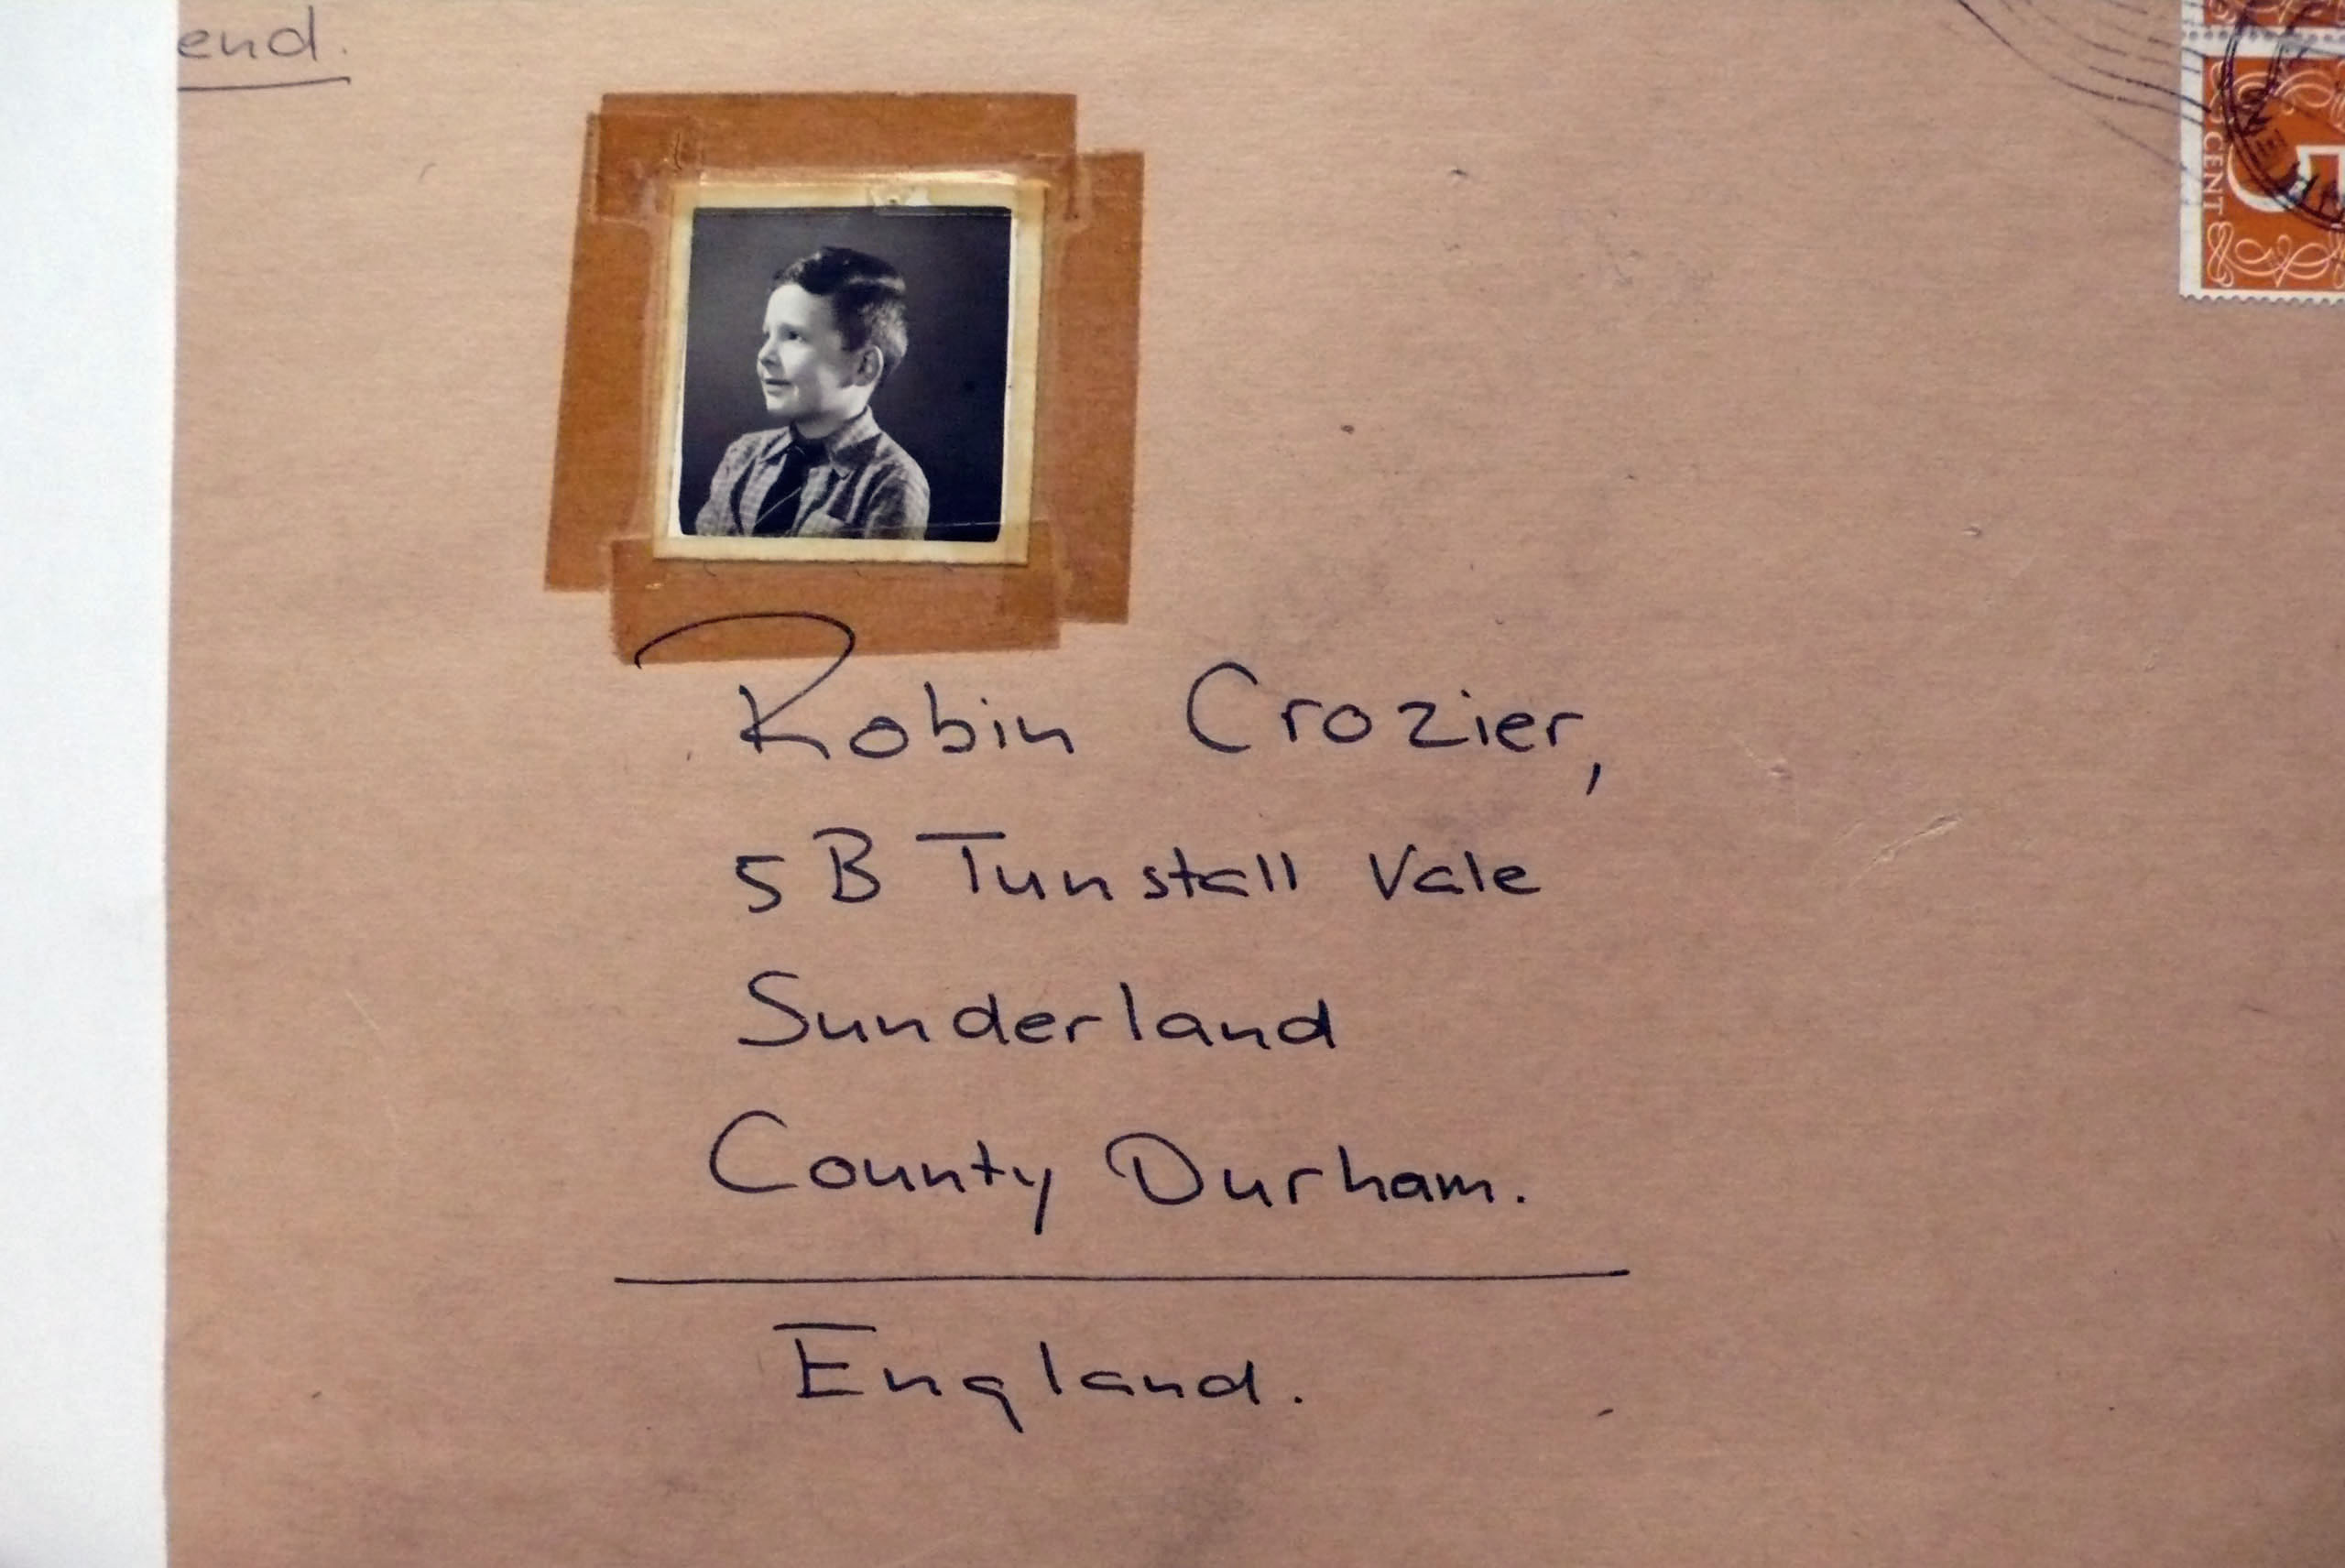 end.
5
CENT
Robin Crozier,
5B Tunstall Vale
Sunderland
County Durham.
England.